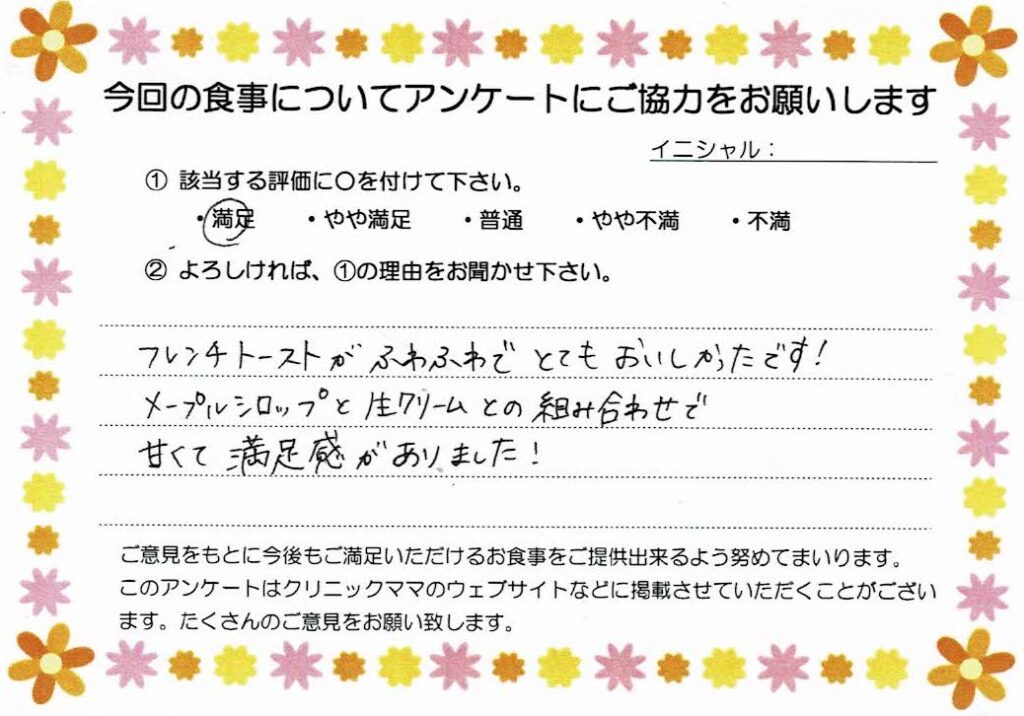 今回の食事についてアンケートにご協力をお願いします
イニシャル：
① 該当する評価に〇を付けて下さい。
・満足 ・やや満足 ・普通 ・やや不満 ・不満
② よろしければ、①の理由をお聞かせ下さい。
フレンチトーストがふわふわでとてもおいしかったです！
メープルシロップと生クリームとの組み合わせで
甘くて満足感がありました！
ご意見をもとに今後もご満足いただけるお食事をご提供出来るよう努めてまいります。
このアンケートはクリニックママのウェブサイトなどに掲載させていただくことがござい
ます。たくさんのご意見をお願い致します。